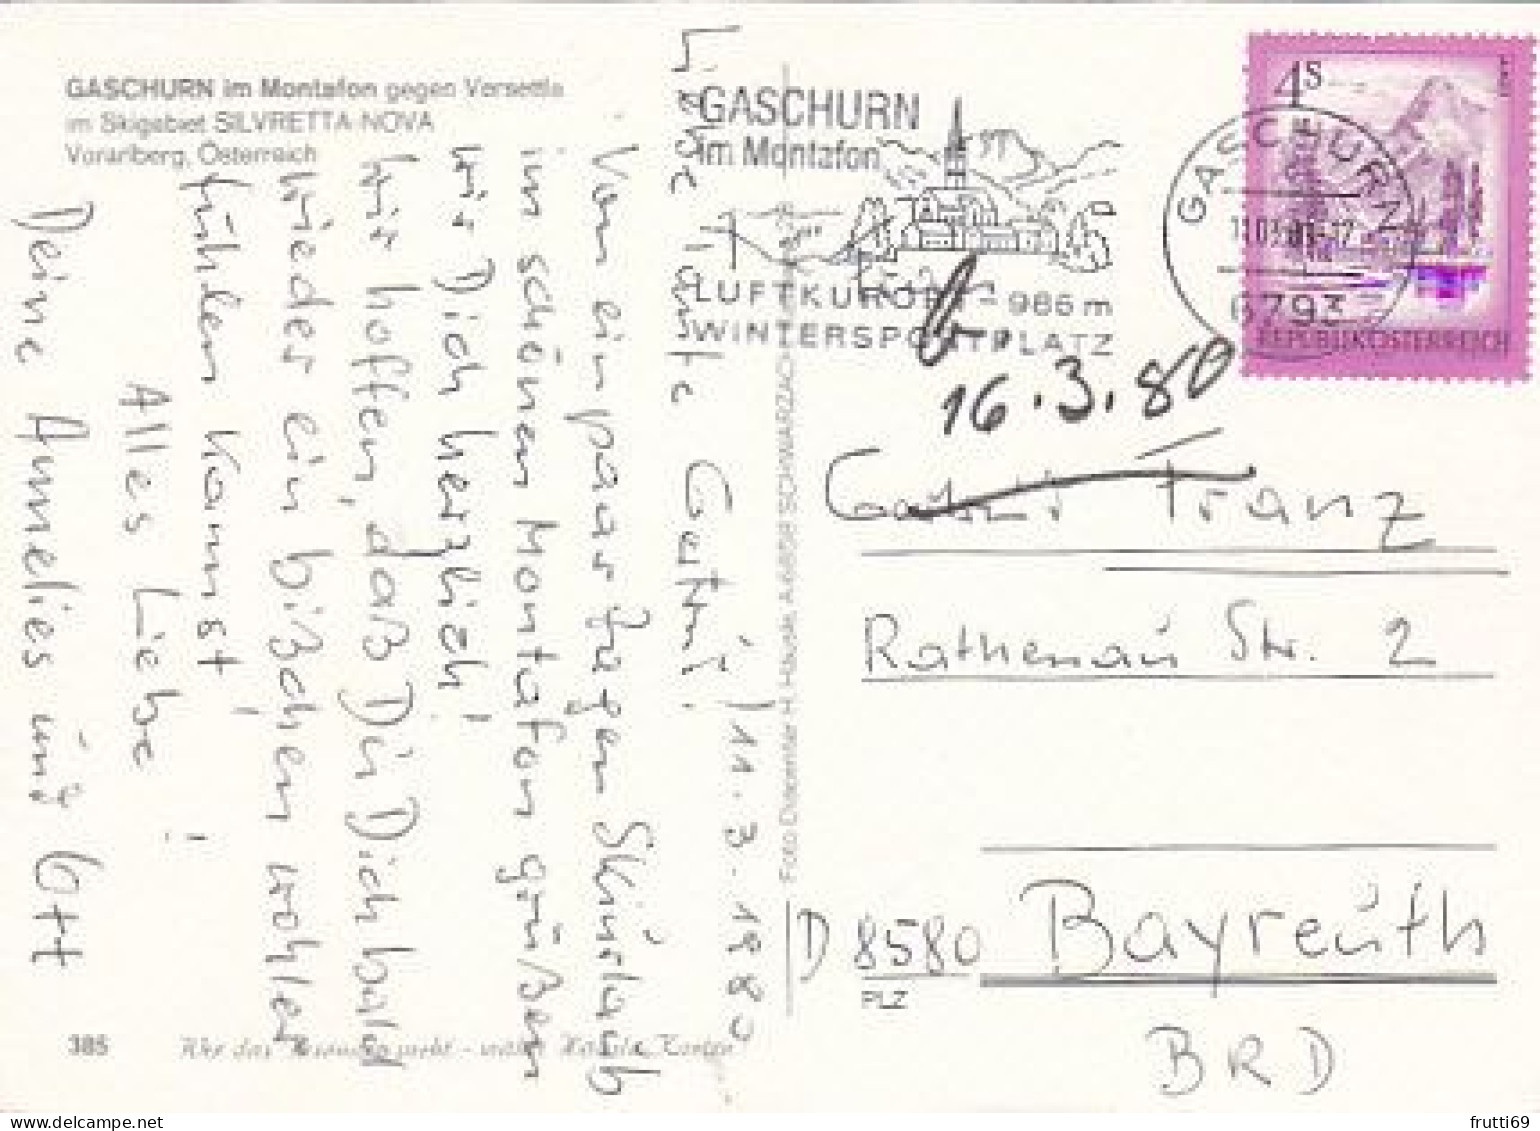 GASCHURN im Montafon gegen Versettla
im Skigebiet SILVRETTA-NOVA
Vorarlberg, Österreich
Liebe Tante Gertrud! 11.3.1980
Von ein paar Tagen Skiurlaub
im schönen Montafon grüßen
wir Dich herzlich!
Wir hoffen, daß Du Dich bald
wieder ein bißchen wohler
fühlen kannst!
Alles Liebe!
Deine Annelies und Ott
385
Foto Diacenter H. Hauske, A-6858 SCHWARZACH
GASCHURN
im Montafon
LUFTKURORT - 986 m
WINTERSPORTPLATZ
GASCHURN
6793
4S
REPUBLIK ÖSTERREICH
b.
16.3.80
Franz
Rathenau Str. 2
D 8580 Bayreuth
PLZ
BRD
frutti69